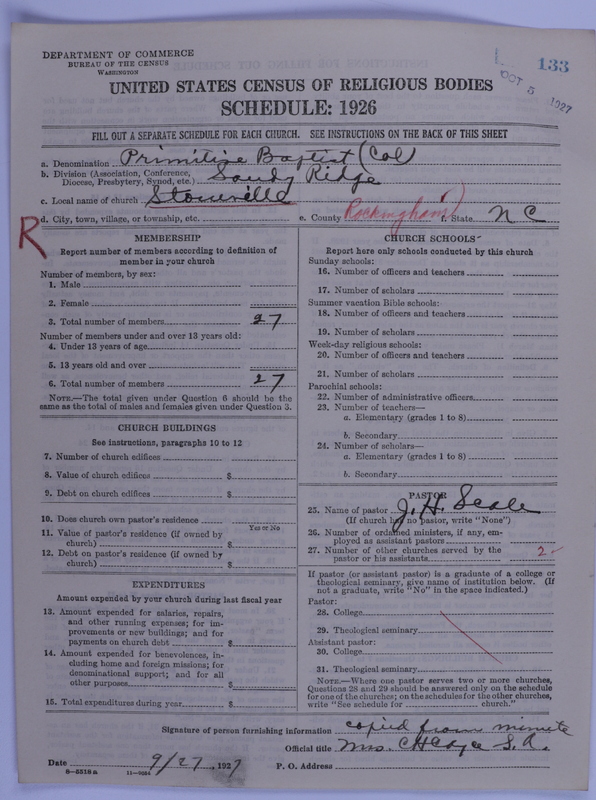 DEPARTMENT OF COMMERCE
BUREAU OF THE CENSUS
WASHINGTON
133
OCT 5 1927
UNITED STATES CENSUS OF RELIGIOUS BODIES
SCHEDULE: 1926
FILL OUT A SEPARATE SCHEDULE FOR EACH CHURCH. SEE INSTRUCTIONS ON THE BACK OF THIS SHEET
a. Denomination Primitive Baptist (Col)
b. Division (Association, Conference,
Diocese, Presbytery, Synod, etc.) Sandy Ridge
c. Local name of church Stoneville
d. City, town, village, or township, etc. e. County Rockingham f. State N C
R
MEMBERSHIP
Report number of members according to definition of
member in your church
Number of members, by sex:
1. Male
2. Female
3. Total number of members 27
Number of members under and over 13 years old:
4. Under 13 years of age
5. 13 years old and over
6. Total number of members 27
NOTE.—The total given under Question 6 should be the
same as the total of males and females given under Question 3.
CHURCH BUILDINGS
See instructions, paragraphs 10 to 12
7. Number of church edifices
8. Value of church edifices $
9. Debt on church edifices $
10. Does church own pastor's residence
Yes or No
11. Value of pastor's residence (if owned by
church) $
12. Debt on pastor's residence (if owned by
church) $
EXPENDITURES
Amount expended by your church during last fiscal year
13. Amount expended for salaries, repairs,
and other running expenses; for im-
provements or new buildings; and for
payments on church debt $
14. Amount expended for benevolences, in-
cluding home and foreign missions; for
denominational support; and for all
other purposes $
15. Total expenditures during year $
CHURCH SCHOOLS
Report here only schools conducted by this church
Sunday schools:
16. Number of officers and teachers
17. Number of scholars
Summer vacation Bible schools:
18. Number of officers and teachers
19. Number of scholars
Week-day religious schools:
20. Number of officers and teachers
21. Number of scholars
Parochial schools:
22. Number of administrative officers
23. Number of teachers—
a. Elementary (grades 1 to 8)
b. Secondary
24. Number of scholars—
a. Elementary (grades 1 to 8)
b. Secondary
PASTOR
25. Name of pastor J. H. Scale
(If church has no pastor, write "None")
26. Number of ordained ministers, if any, em-
ployed as assistant pastors
27. Number of other churches served by the
pastor or his assistants 2
If pastor (or assistant pastor) is a graduate of a college or
theological seminary, give name of institution below. (If
not a graduate, write "No" in the space indicated.)
Pastor:
28. College
29. Theological seminary
Assistant pastor:
30. College
31. Theological seminary
NOTE.—Where one pastor serves two or more churches,
Questions 28 and 29 should be answered only on the schedule
for one of the churches; on the schedules for the other churches,
write "See schedule for church."
Signature of person furnishing information copied from minute
Official title Mrs. S. A.
Date 9/27, 1927 P. O. Address
8-5518a 11-9654